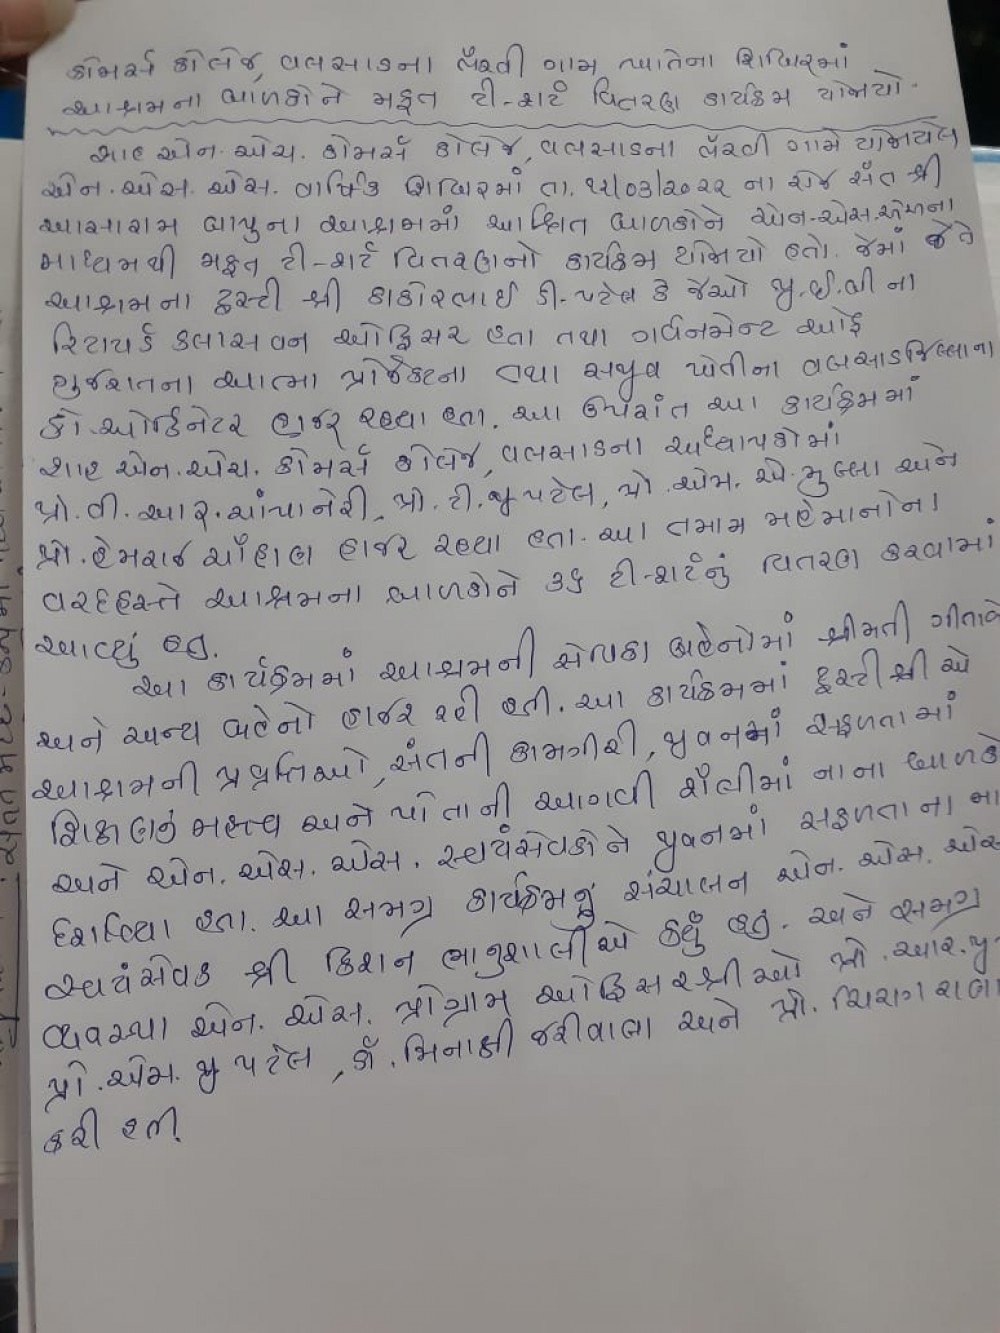 કોમર્સ કોલેજ, વલસાડના ભૈરવી ગામ ખાતેના શિબિરમાં
આશ્રમના બાળકોને મફત ટી-શર્ટ વિતરણ કાર્યક્રમ યોજાયો.
શાહ એન. એચ. કોમર્સ કોલેજ, વલસાડના ભૈરવી ગામે યોજાયેલ
એન. એસ. એસ. વાર્ષિક શિબિરમાં તા. ૧૨/૦૩/૨૦૨૨ ના રોજ સંત શ્રી
આસારામ બાપુના આશ્રમમાં આશ્રિત બાળકોને એન.એસ.એસના
માધ્યમથી મફત ટી-શર્ટ વિતરણનો કાર્યક્રમ યોજાયો હતો. જેમાં જે તે
આશ્રમના ટ્રસ્ટી શ્રી ઠાકોરભાઈ ડી. પટેલ કે જેઓ જી.ઈ.બી ના
રિટાયર્ડ કલાસ વન ઓફિસર હતા તથા ગર્વનમેન્ટ ઓફ
ગુજરાતના આત્મા પ્રોજેક્ટના તથા સજીવ ખેતીના વલસાડ જિલ્લાના
કો. ઓર્ડિનેટર હાજર રહ્યા હતા. આ ઉપરાંત આ કાર્યક્રમમાં
શાહ એન. એચ. કોમર્સ કોલેજ, વલસાડના અધ્યાપકોમાં
પ્રો. વી. આર. ચાંપાનેરી, પ્રો. ટી. જી પટેલ, પ્રો. એમ. એ. મુલ્લા અને
પ્રો. હેમરાજ ચૌહાણ હાજર રહ્યા હતા. આ તમામ મહેમાનોના
વરદહસ્તે આશ્રમના બાળકોને ૩૬ ટી-શર્ટનું વિતરણ કરવામાં
આવ્યું હતુ.
આ કાર્યક્રમમાં આશ્રમની સેવિકા બહેનોમાં શ્રીમતી ગીતાબે
અને અન્ય બહેનો હાજર રહી હતી. આ કાર્યક્રમમાં ટ્રસ્ટી શ્રી એ
આશ્રમની પ્રવૃત્તિઓ, સંતની કામગીરી, જીવનમાં સફળતામાં
શિક્ષણનું મહત્ત્વ અને પોતાની આગવી શૈલીમાં નાના બાળકો
અને એન. એસ. એસ. સ્વયંસેવકોને જીવનમાં સફળતાના મા
દર્શાવ્યા હતા. આ સમગ્ર કાર્યક્રમનું સંચાલન એન. એસ. એસ
સ્વયંસેવક શ્રી કિશન ભાનુશાલીએ કર્યું હતુ. અને સમગ્ર
વ્યવસ્થા એન. એસ. પ્રોગ્રામ ઓફિસરશ્રીઓ પ્રો. આર. જી.
પ્રો. એમ. જી પટેલ, ડૉ. મિનાક્ષી જરીવાલા અને પ્રો. ચિરાગ રાણા
કરી હતી.